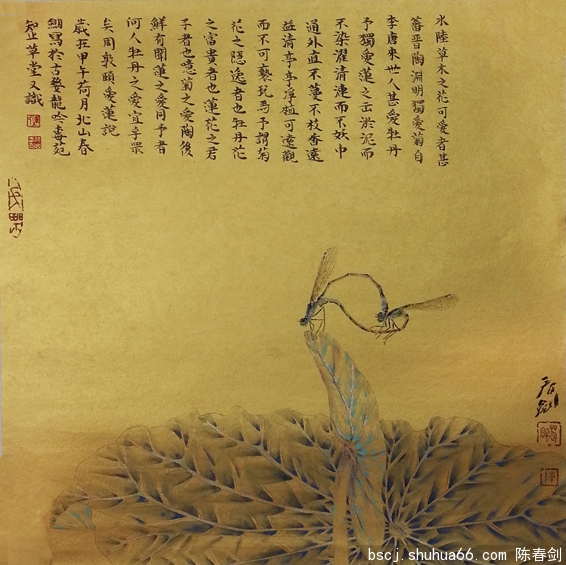 水陸草木之花可愛者甚
蕃晉陶淵明獨愛菊自
李唐來世人甚愛牡丹
予獨愛蓮之出淤泥而
不染濯清漣而不妖中
通外直不蔓不枝香遠
益清亭亭淨植可遠觀
而不可褻玩焉予謂菊
花之隱逸者也牡丹花
之富貴者也蓮花之君
子者也噫菊之愛陶後
鮮有聞蓮之愛同予者
何人牡丹之愛宜乎眾
矣周敦頤愛蓮說
歲在甲午荷月北山春
寫於古婺龍吟書苑
知止草堂又識
bscj.shuhua66.com 陈春剑